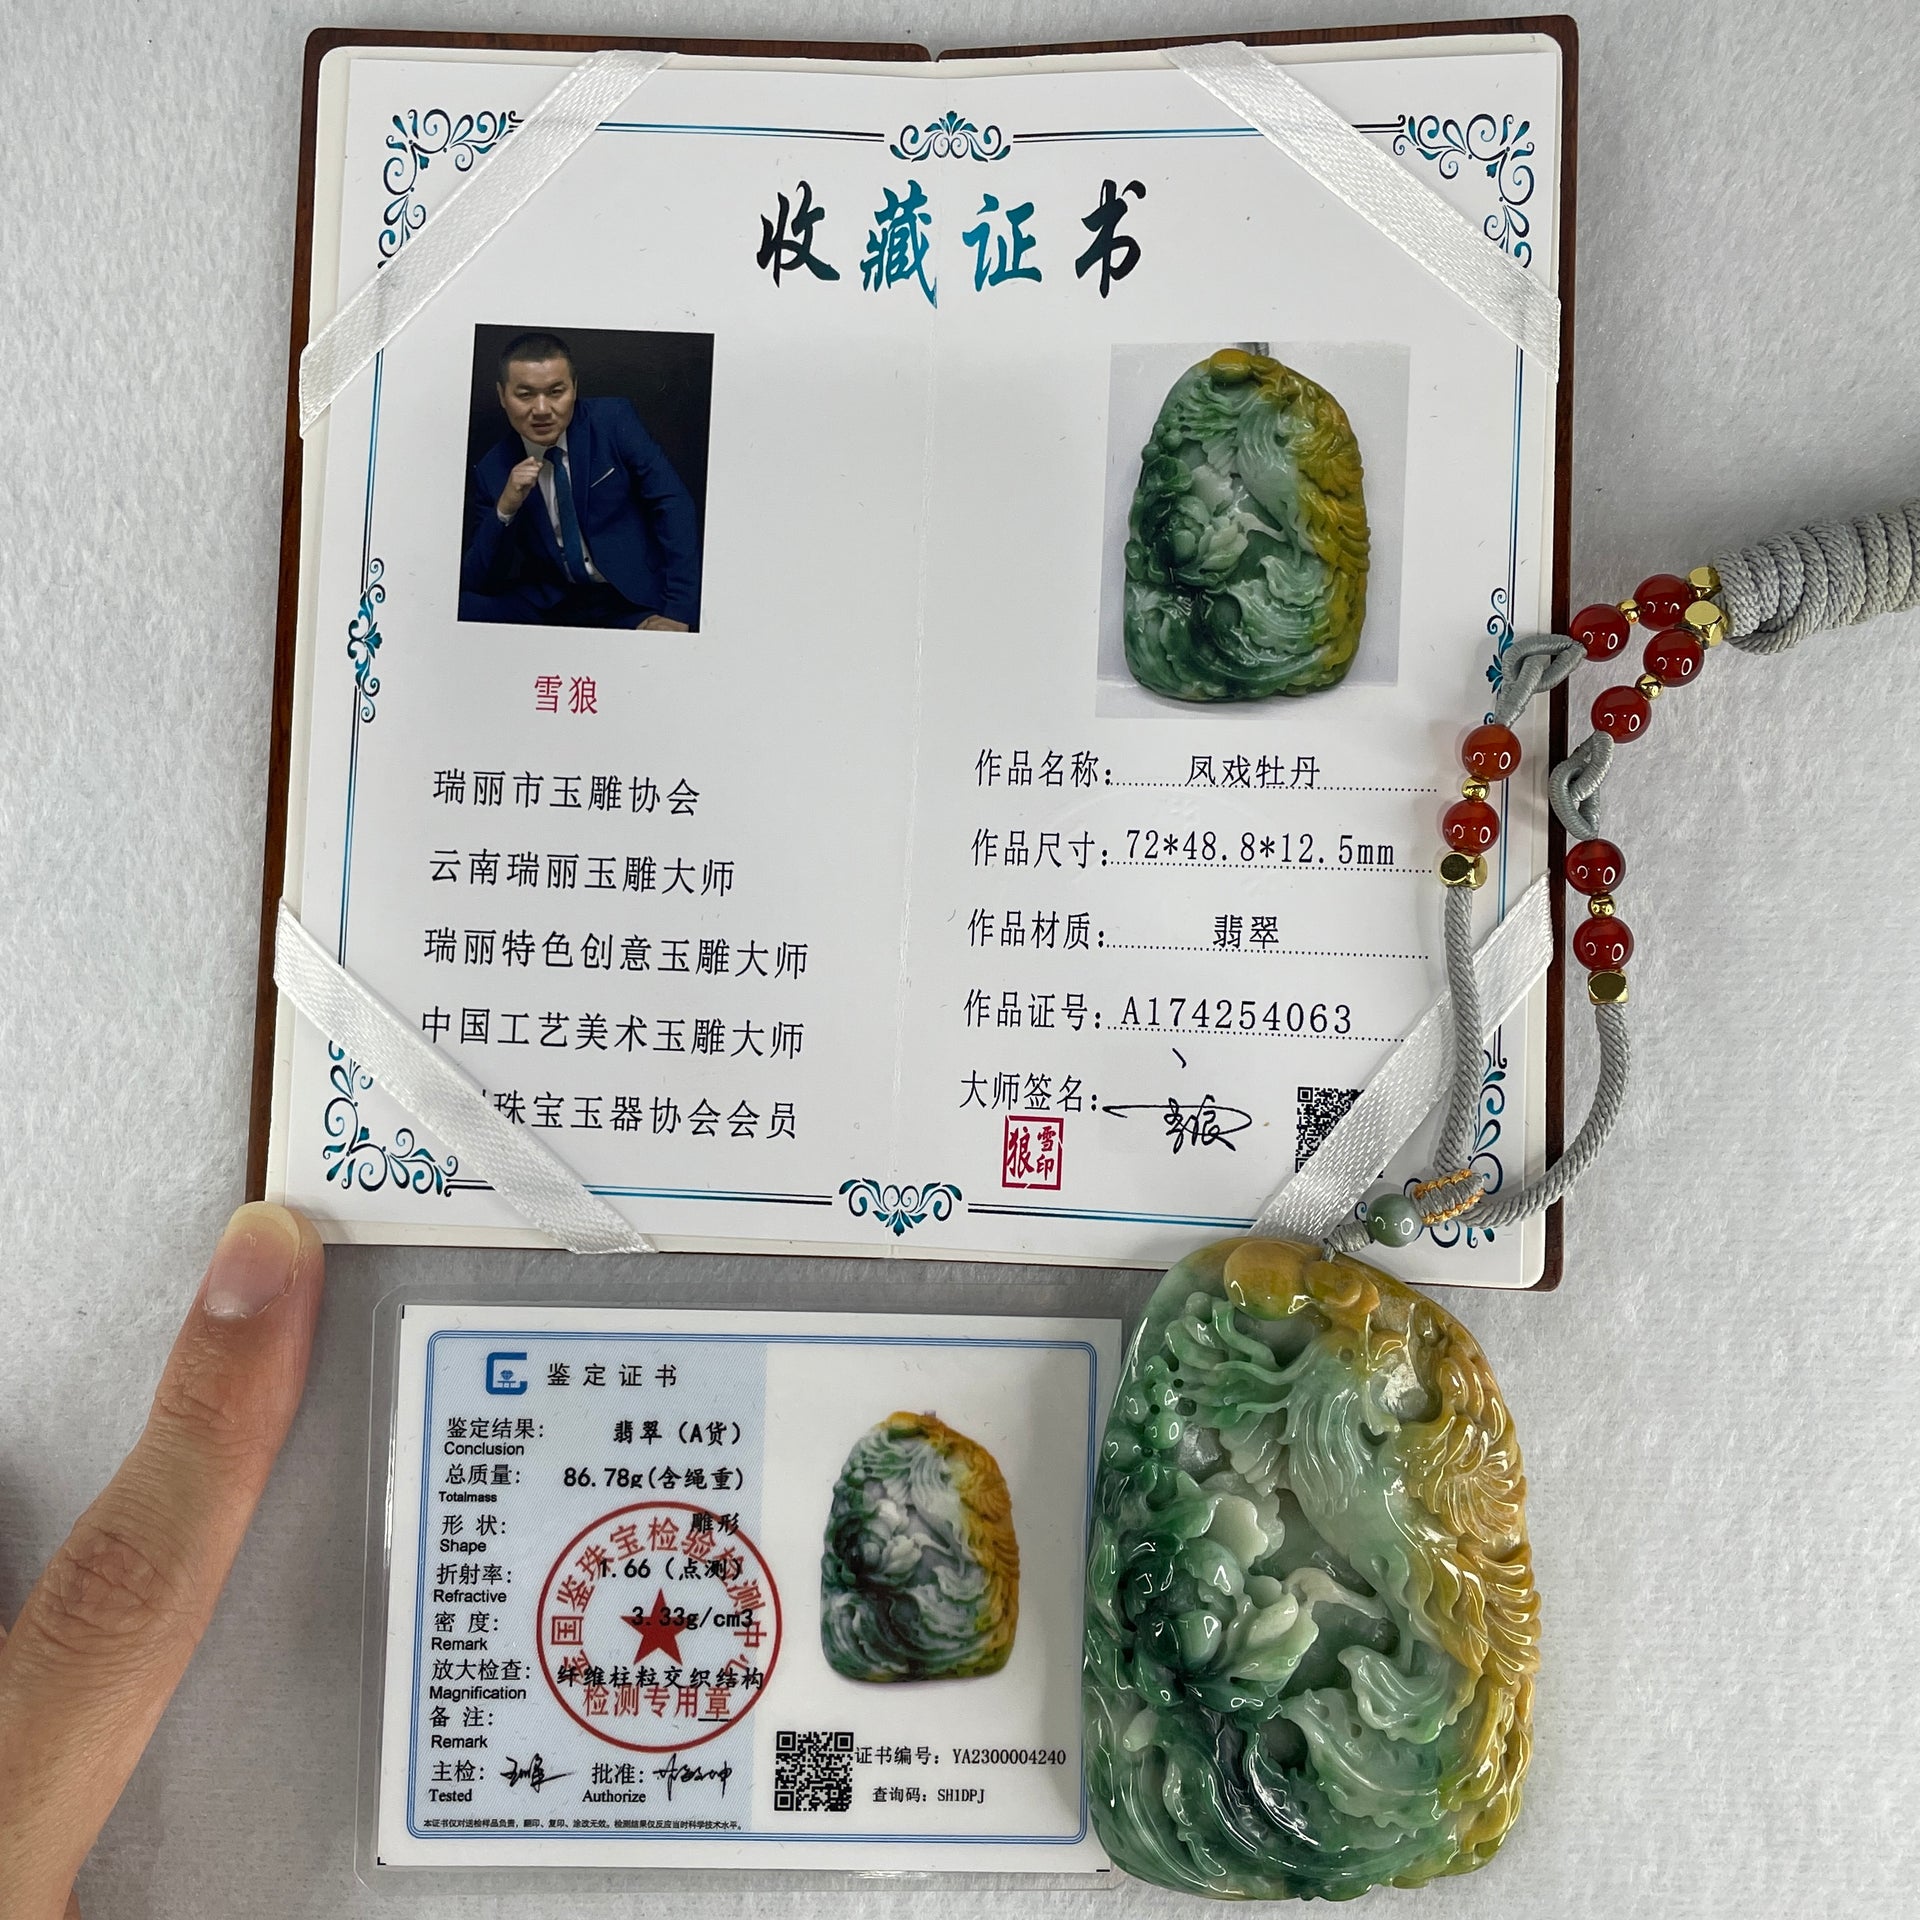 收藏证书
雪狼
瑞丽市玉雕协会
云南瑞丽玉雕大师
瑞丽特色创意玉雕大师
中国工艺美术玉雕大师
珠宝玉器协会会员
作品名称：凤戏牡丹
作品尺寸：72*48.8*12.5mm
作品材质：翡翠
作品证号：A174254063
大师签名：
雪狼印
鉴定证书
鉴定结果： 翡翠（A货）
Conclusion
总质量： 86.78g(含绳重)
Totalmass
形 状： 雕形
Shape
折射率： 1.66（点测）
Refractive
密 度： 3.33g/cm3
Remark
放大检查： 纤维柱粒交织结构
Magnification
备 注：
Remark
主检： 批准：
Tested Authorize
本证书仅对送检样品负责，翻印、复印、涂改无效。检测结果仅反应当时科学技术水平。
国鉴珠宝检验检测中心
检测专用章
证书编号：YA2300004240
查询码：SH1DPJ